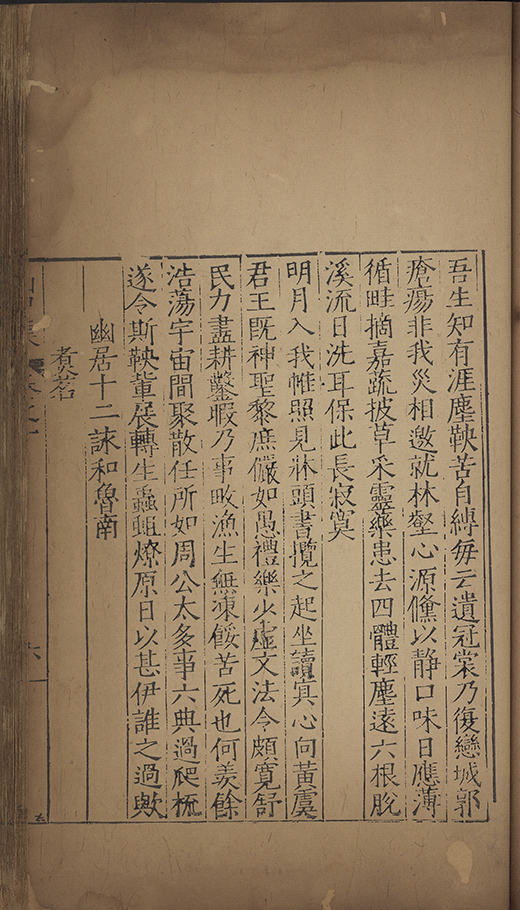 吾生知有涯塵鞅苦自縛每云遺冠裳乃復戀城郭
瘡瘍非我災相邀就林壑心源儻以靜口味日應薄
循畦摘嘉蔬披草采靈藥患去四體輕塵遠六根脫
溪流日洗耳保此長寂寞
明月入我帷照見牀頭書攬之起坐讀寘心向黃虞
君王既神聖黎庶儼如愚禮樂少虛文法令頗寬舒
民力盡耕鑿暇乃事畋漁生無凍餒苦死也何羨餘
浩蕩宇宙間聚散任所如周公太多事六典過爬梳
遂令斯鞅輩展轉生蟊蛆燎原日以甚伊誰之過歟
幽居十二詠和魯南
煮茗